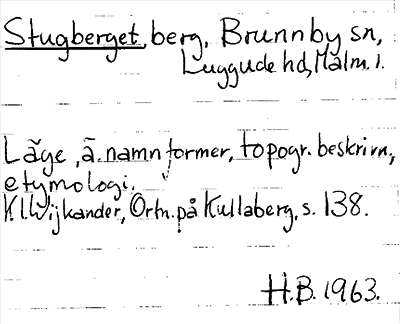 Stugberget, berg, Brunnby sn,
Luggude hd, Malm. l.
Läge, ä. namnformer, topogr. beskrivn.,
etymologi.
K. Wijkander, Ortn. på Kullaberg, s. 138.
H.B. 1963.